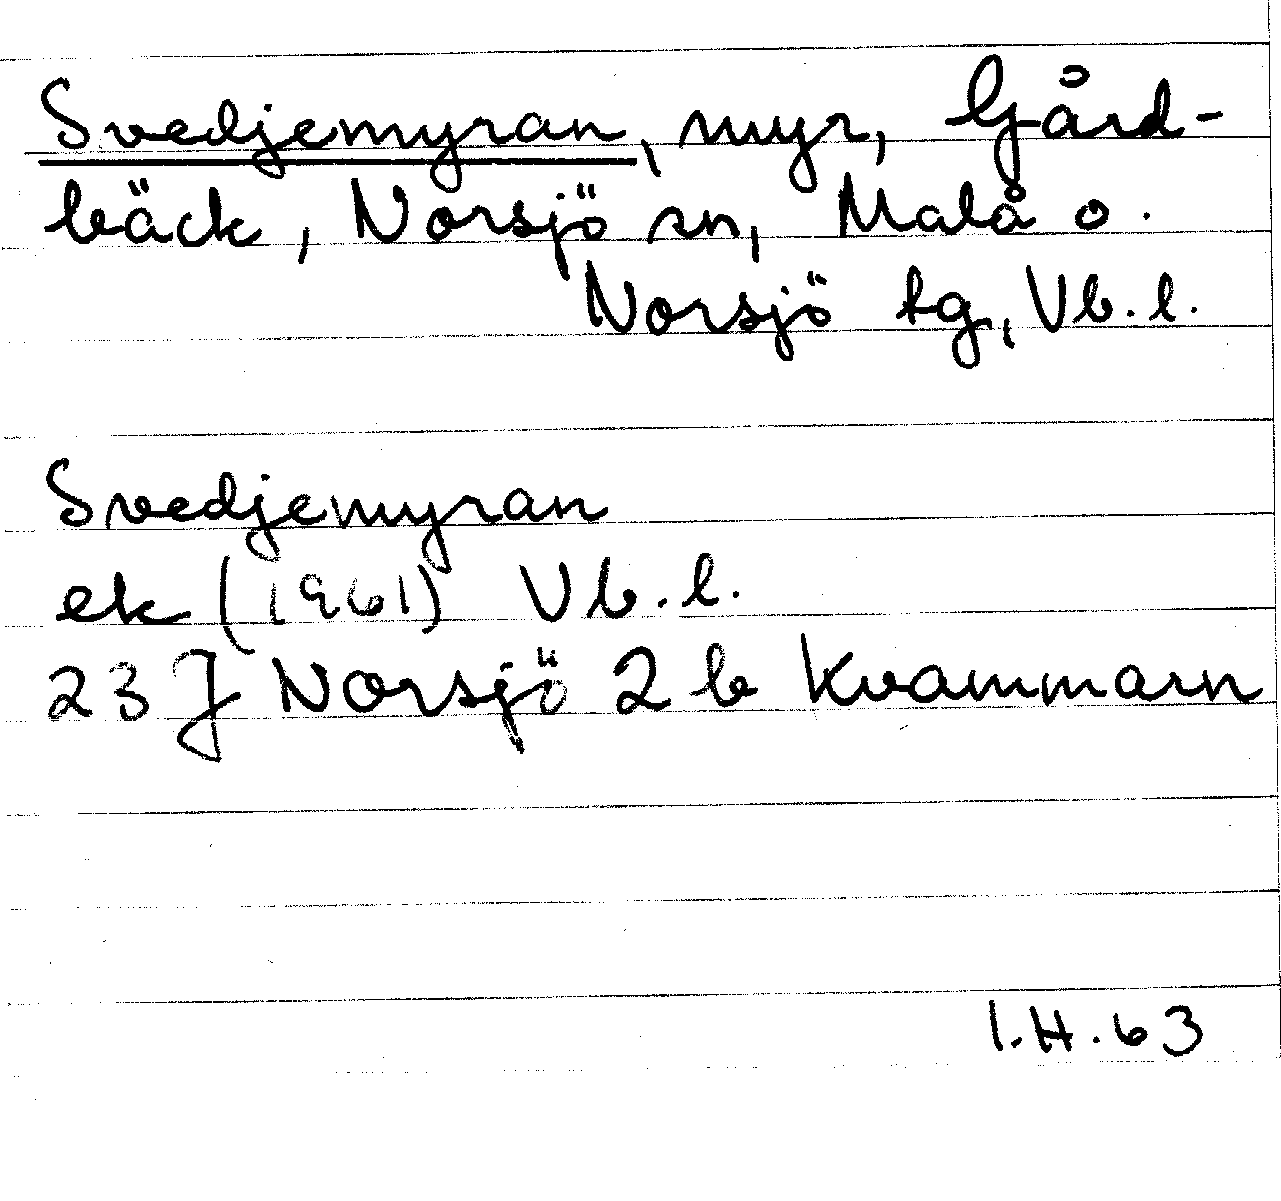 Svedjemyran, myr, Gård-
bäck, Norsjö sn, Malå o.
Norsjö tg, Vb.l.
Svedjemyran
ek (1961) Vb.l.
23 J Norsjö 2 b Kvammarn
I.H. 63